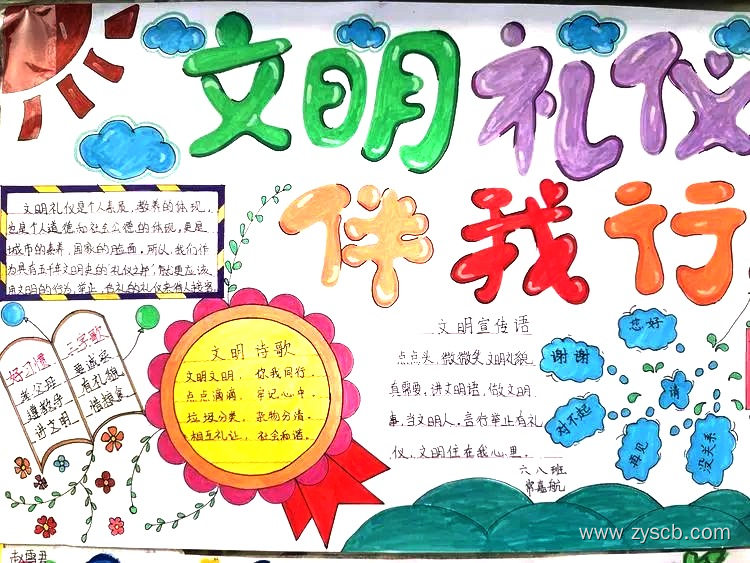 文明礼仪
伴我行
文明礼仪是个人素质,教养的体现,
也是个人道德和社会公德的体现,更是
城市的素养,国家的脸面。所以,我们作
为具有五千年文明史的"礼仪之邦",更应该
用文明的行为,举止,合礼的礼仪来待人接客。
好习惯
孝父母
遵教导
讲文明
三字歌
要诚实
有礼貌
惜粮食
文明诗歌
文明文明,你我同行,
点点滴滴,牢记心中。
垃圾分类,杂物分清,
相互礼让,社会和谐。
文明宣传语
点点头,微微笑,文明礼貌
真需要,讲文明语,做文明
事,当文明人,言行举止有礼
仪,文明住在我心里。
六八班
常嘉航
您好
谢谢
请
对不起
再见
没关系
赵雪君
www.zyscb.com